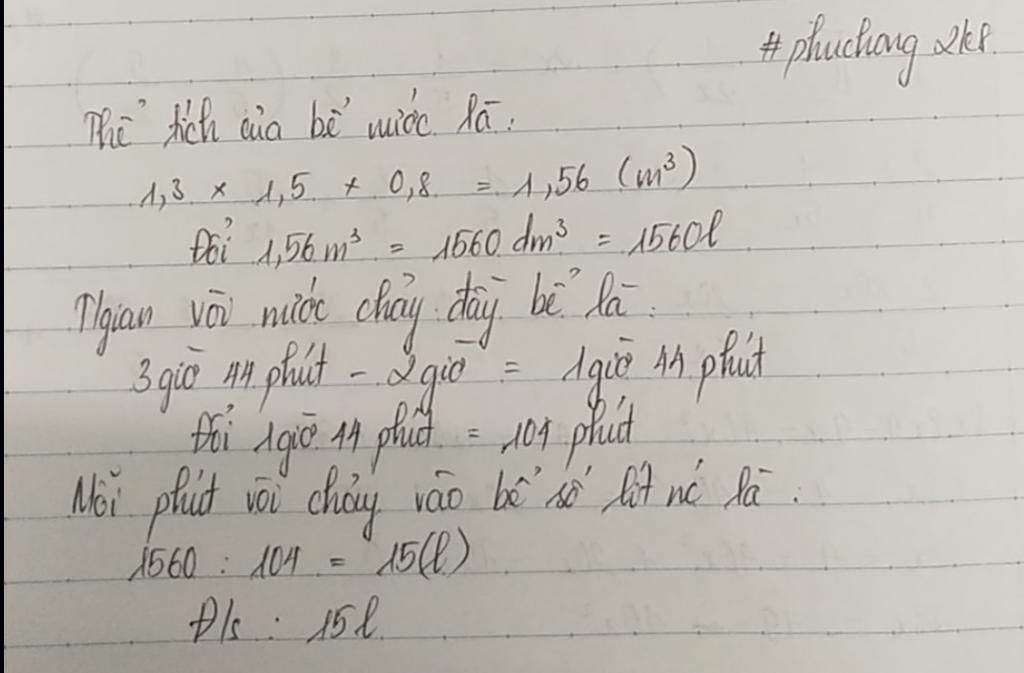 #phuchong 2k8.
Thể tích của bể nước là:
1,3 × 1,5 × 0,8 = 1,56 (m³)
Đổi 1,56 m³ = 1560 dm³ = 1560l
T/gian vòi nước chảy đầy bể là:
3 giờ 44 phút - 2 giờ = 1 giờ 44 phút
Đổi 1 giờ 44 phút = 104 phút
Mỗi phút vòi chảy vào bể số lít nc là:
1560 : 104 = 15 (l)
Đ/s : 15l